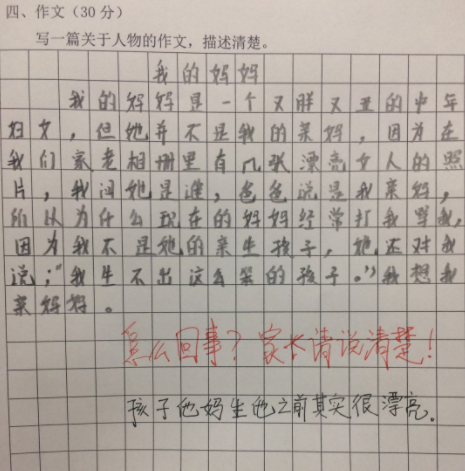 四、作文(30分)
写一篇关于人物的作文,描述清楚。
我的妈妈
我的妈妈是一个又胖又丑的中年
妇女,但她并不是我的亲妈,因为在
我们家老相册里有几张漂亮女人的照
片,我问她是谁,爸爸说是我亲妈,
所以为什么现在的妈妈经常打我骂我,
因为我不是她的亲生孩子,她还对我
说:“我生不出这么笨的孩子。”我想我
亲妈妈。
怎么回事?家长请说清楚!
孩子他妈生他之前其实很漂亮.